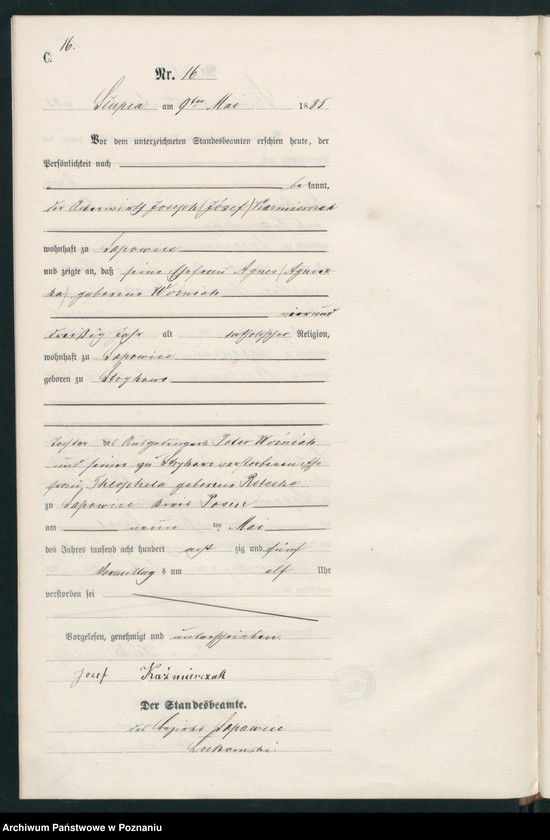 C.
16.
Nr. 16
Słupia am 9ten Mai 1885
Vor dem unterzeichneten Standesbeamten erschien heute, der
Persönlichkeit nach
be kannt,
der Ackerwirth Joseph (Józef) Kazmierczak
wohnhaft zu Sapowice
und zeigte an, daß seine Ehefrau Agnes (Agniesz
ka) geborene Woźniak
vierund
dreißig Jahr alt katholischer Religion,
wohnhaft zu Sapowice
geboren zu Strykowo
Tochter des Peter Woźniak
und seiner zu verstorbenen Ehe
frau, Theophila geborene
zu Sapowice Kreis Posen
am neun ten Mai
des Jahres tausend acht hundert acht zig und fünf
Vormittag s um elf Uhr
verstorben sei
Vorgelesen, genehmigt und unterschrieben.
Józef Kaźmierczak
Der Standesbeamte.
des Bezirks Sapowice
Archiwum Państwowe w Poznaniu